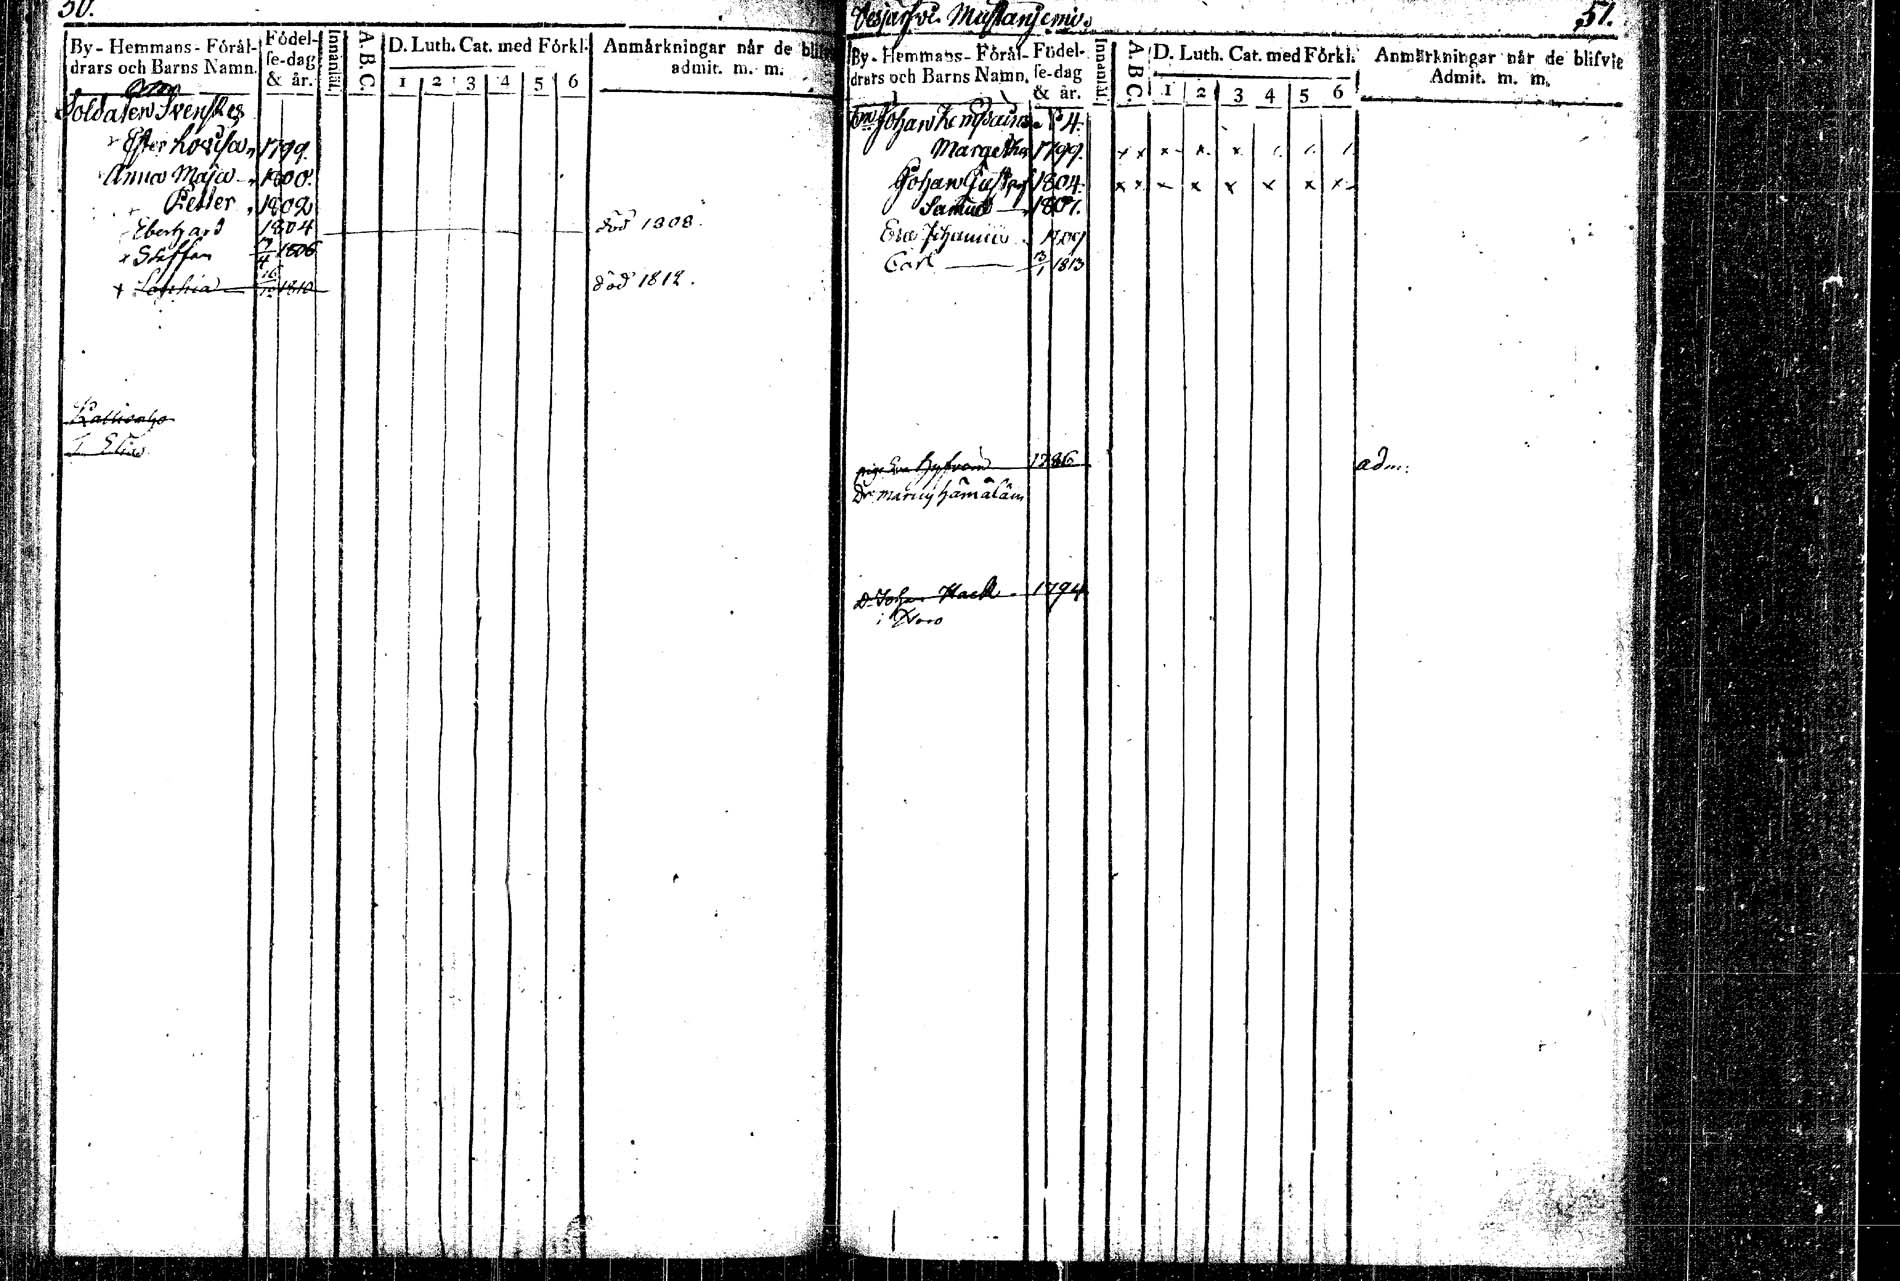 50.
By - Hemmans - Fórål-
drars och Barns Namn.
Fódel-
se-dag
& år.
Innanläs.
A. B. C.
D. Luth. Cat. med Fórkl.
1 2 3 4 5 6
Anmårkningar når de blifv
admit. m. m.
Soldaten Svenskes
Ester Lovisa 1799.
Anna Maja 1800.
Petter 1802
Eberhard 1804 död 1808.
Steffan 1806
Sophia 1810 död 1812.
J Elias
Vesjärfvi. Mustaniemi.
51.
By - Hemmans - Fórål-
drars och Barns Namn.
Fódel-
se-dag
& år.
Innanläs.
A. B C.
D. Luth. Cat. med Fórkl.
1 2 3 4 5 6
Anmårkningar når de blifvit
Admit. m. m.
Johan
Margetha 1799. x x x x x 1 1 1
Johan Gustaf 1804. x x x x x x x x
Samuel 1807.
Eva Johanna 1809
Carl 13/1 1813
pigan Eva 1786 adm:
Dr
Dr Johan Hack 1794
i